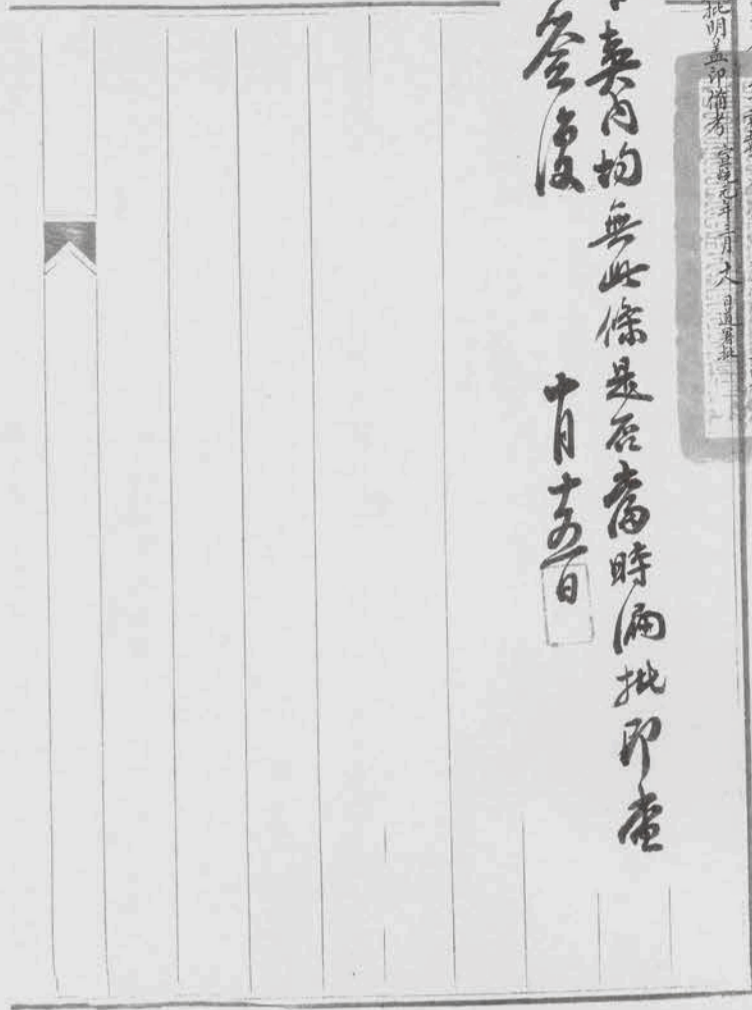 批明蓋印備考 宣統元年三月 大 日道署批
契內均無此條是否當時漏批即查
簽復
十月十五日